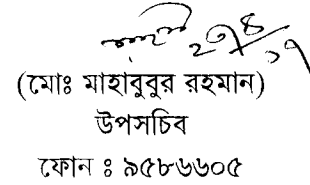 (মোঃ মাহাবুবুর রহমান)
উপসচিব
ফোন ঃ ৯৫৮৬৬০৫